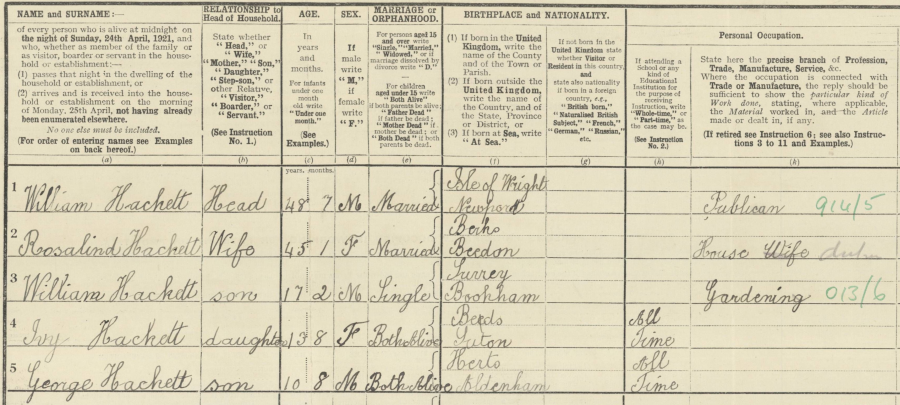 NAME and SURNAME:—
of every person who is alive at midnight on
the night of Sunday, 24th April, 1921, and
who, whether as member of the family or
as visitor, boarder or servant in the house-
hold or establishment:—
(1) passes that night in the dwelling of the
household or establishment, or
(2) arrives and is received into the house-
hold or establishment on the morning
of Monday, 25th April, not having already
been enumerated elsewhere.
No one else must be included.
(For order of entering names see Examples
on back hereof.)
(a)
RELATIONSHIP to
Head of Household.
State whether
"Head," or
"Wife,"
"Mother," "Son,"
"Daughter,"
"Step-son," or
other Relative,
"Visitor,"
"Boarder," or
"Servant."
(See Instruction
No. 1.)
(b)
AGE.
In
years
and
months.
For infants
under one
month
old write
"Under one
month."
(See
Examples.)
(c)
SEX.
If
male
write
"M."
if
female
write
"F."
(d)
MARRIAGE or
ORPHANHOOD.
For persons aged 15
and over write
"Single," "Married,"
"Widowed," or if
marriage dissolved by
divorce write "D."
For children
aged under 15 write
"Both Alive"
if both parents be alive;
"Father Dead"
if father be dead;
"Mother Dead" if
mother be dead; or
"Both Dead" if both
parents be dead.
(e)
BIRTHPLACE and NATIONALITY.
(1) If born in the United
Kingdom, write the
name of the County
and of the Town or
Parish.
(2) If born outside the
United Kingdom,
write the name of the
Country, and of the
State, Province
or District, or
(3) If born at Sea, write
"At Sea."
(f)
If not born in the
United Kingdom state
whether Visitor or
Resident in this country,
and
state also nationality
if born in a foreign
country, e.g.,
"British born,"
"Naturalised British
Subject," "French,"
"German," "Russian,"
etc.
(g)
If attending a
School or any
kind of
Educational
Institution for
the purpose of
receiving
Instruction, write
"Whole-time," or
"Part-time," as
the case may be.
(See Instruction
No. 2.)
Personal Occupation.
State here the precise branch of Profession,
Trade, Manufacture, Service, &c.
Where the occupation is connected with
Trade or Manufacture, the reply should be
sufficient to show the particular kind of
Work done, stating, where applicable,
the Material worked in, and the Article
made or dealt in, if any.
(If retired see Instruction 6; see also Instruc-
tions 3 to 11 and Examples.)
(h)
(k)
years. months.
1 William Hackett Head 48 7 M Married Isle of Wright
Newport Publican 914/5
2 Rosalind Hackett Wife 45 1 F Married Berks
Beedon House Wife
3 William Hackett son 17 2 M Single Surrey
Bookham Gardening 013/6
4 Ivy Hackett daughter 13 8 F Both Alive Beds
Luton All
Time
5 George Hackett son 10 8 M Both Alive Herts
Aldenham All
Time